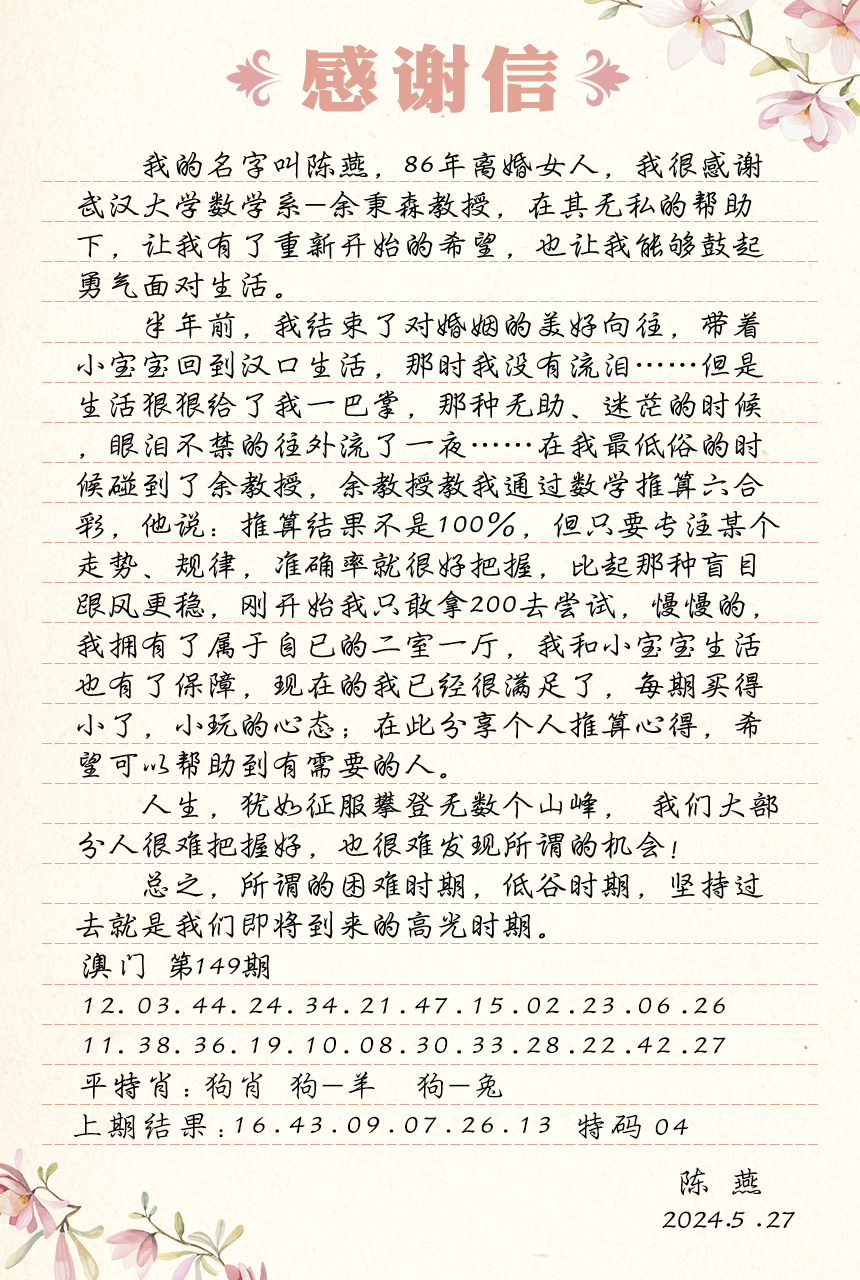 感谢信
我的名字叫陈燕，86年离婚女人，我很感谢
武汉大学数学系—余秉森教授，在其无私的帮助
下，让我有了重新开始的希望，也让我能够鼓起
勇气面对生活。
半年前，我结束了对婚姻的美好向往，带着
小宝宝回到汉口生活，那时我没有流泪……但是
生活狠狠给了我一巴掌，那种无助、迷茫的时候
，眼泪不禁的往外流了一夜……在我最低俗的时
候碰到了余教授，余教授教我通过数学推算六合
彩，他说：推算结果不是100%，但只要专注某个
走势、规律，准确率就很好把握，比起那种盲目
跟风更稳，刚开始我只敢拿200去尝试，慢慢的，
我拥有了属于自已的二室一厅，我和小宝宝生活
也有了保障，现在的我已经很满足了，每期买得
小了，小玩的心态；在此分享个人推算心得，希
望可以帮助到有需要的人。
人生，犹如征服攀登无数个山峰， 我们大部
分人很难把握好，也很难发现所谓的机会！
总之，所谓的困难时期，低谷时期，坚持过
去就是我们即将到来的高光时期。
澳门 第149期
12.03.44.24.34.21.47.15.02.23.06.26
11.38.36.19.10.08.30.33.28.22.42.27
平特肖：狗肖 狗—羊 狗—兔
上期结果：16.43.09.07.26.13 特码 04
陈 燕
2024.5.27